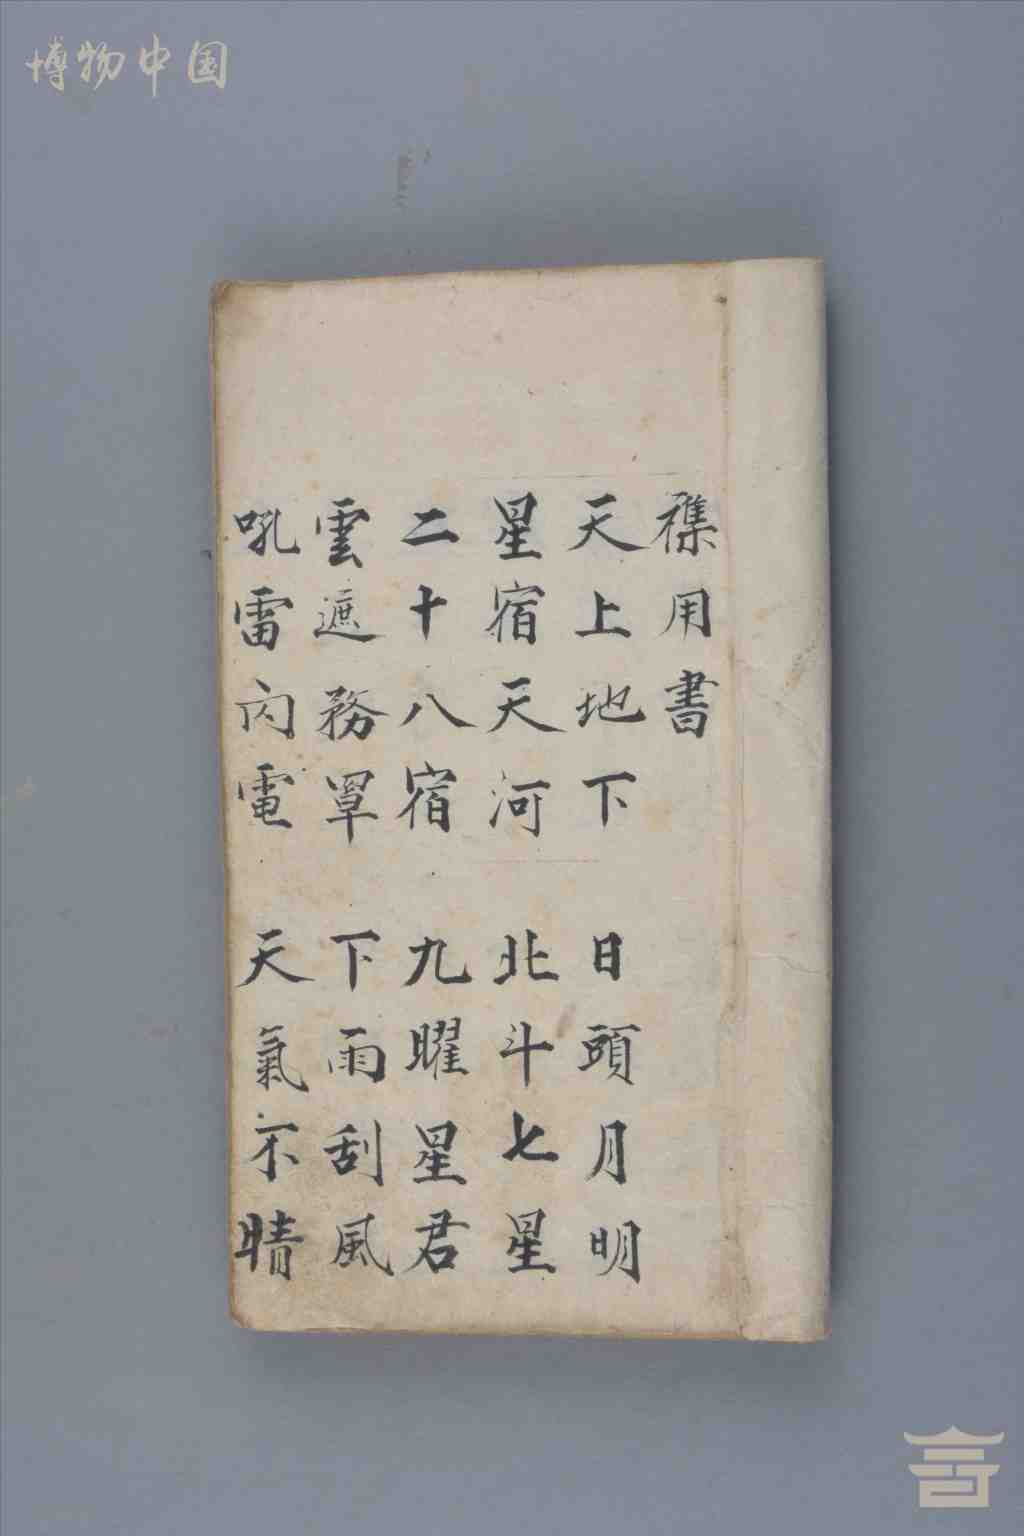 博物中国
襍用書
天上地下 日頭月明
星宿天河 北斗七星
二十八宿 九曜星君
雲遮務罩 下雨刮風
吼雷閃電 天氣不晴